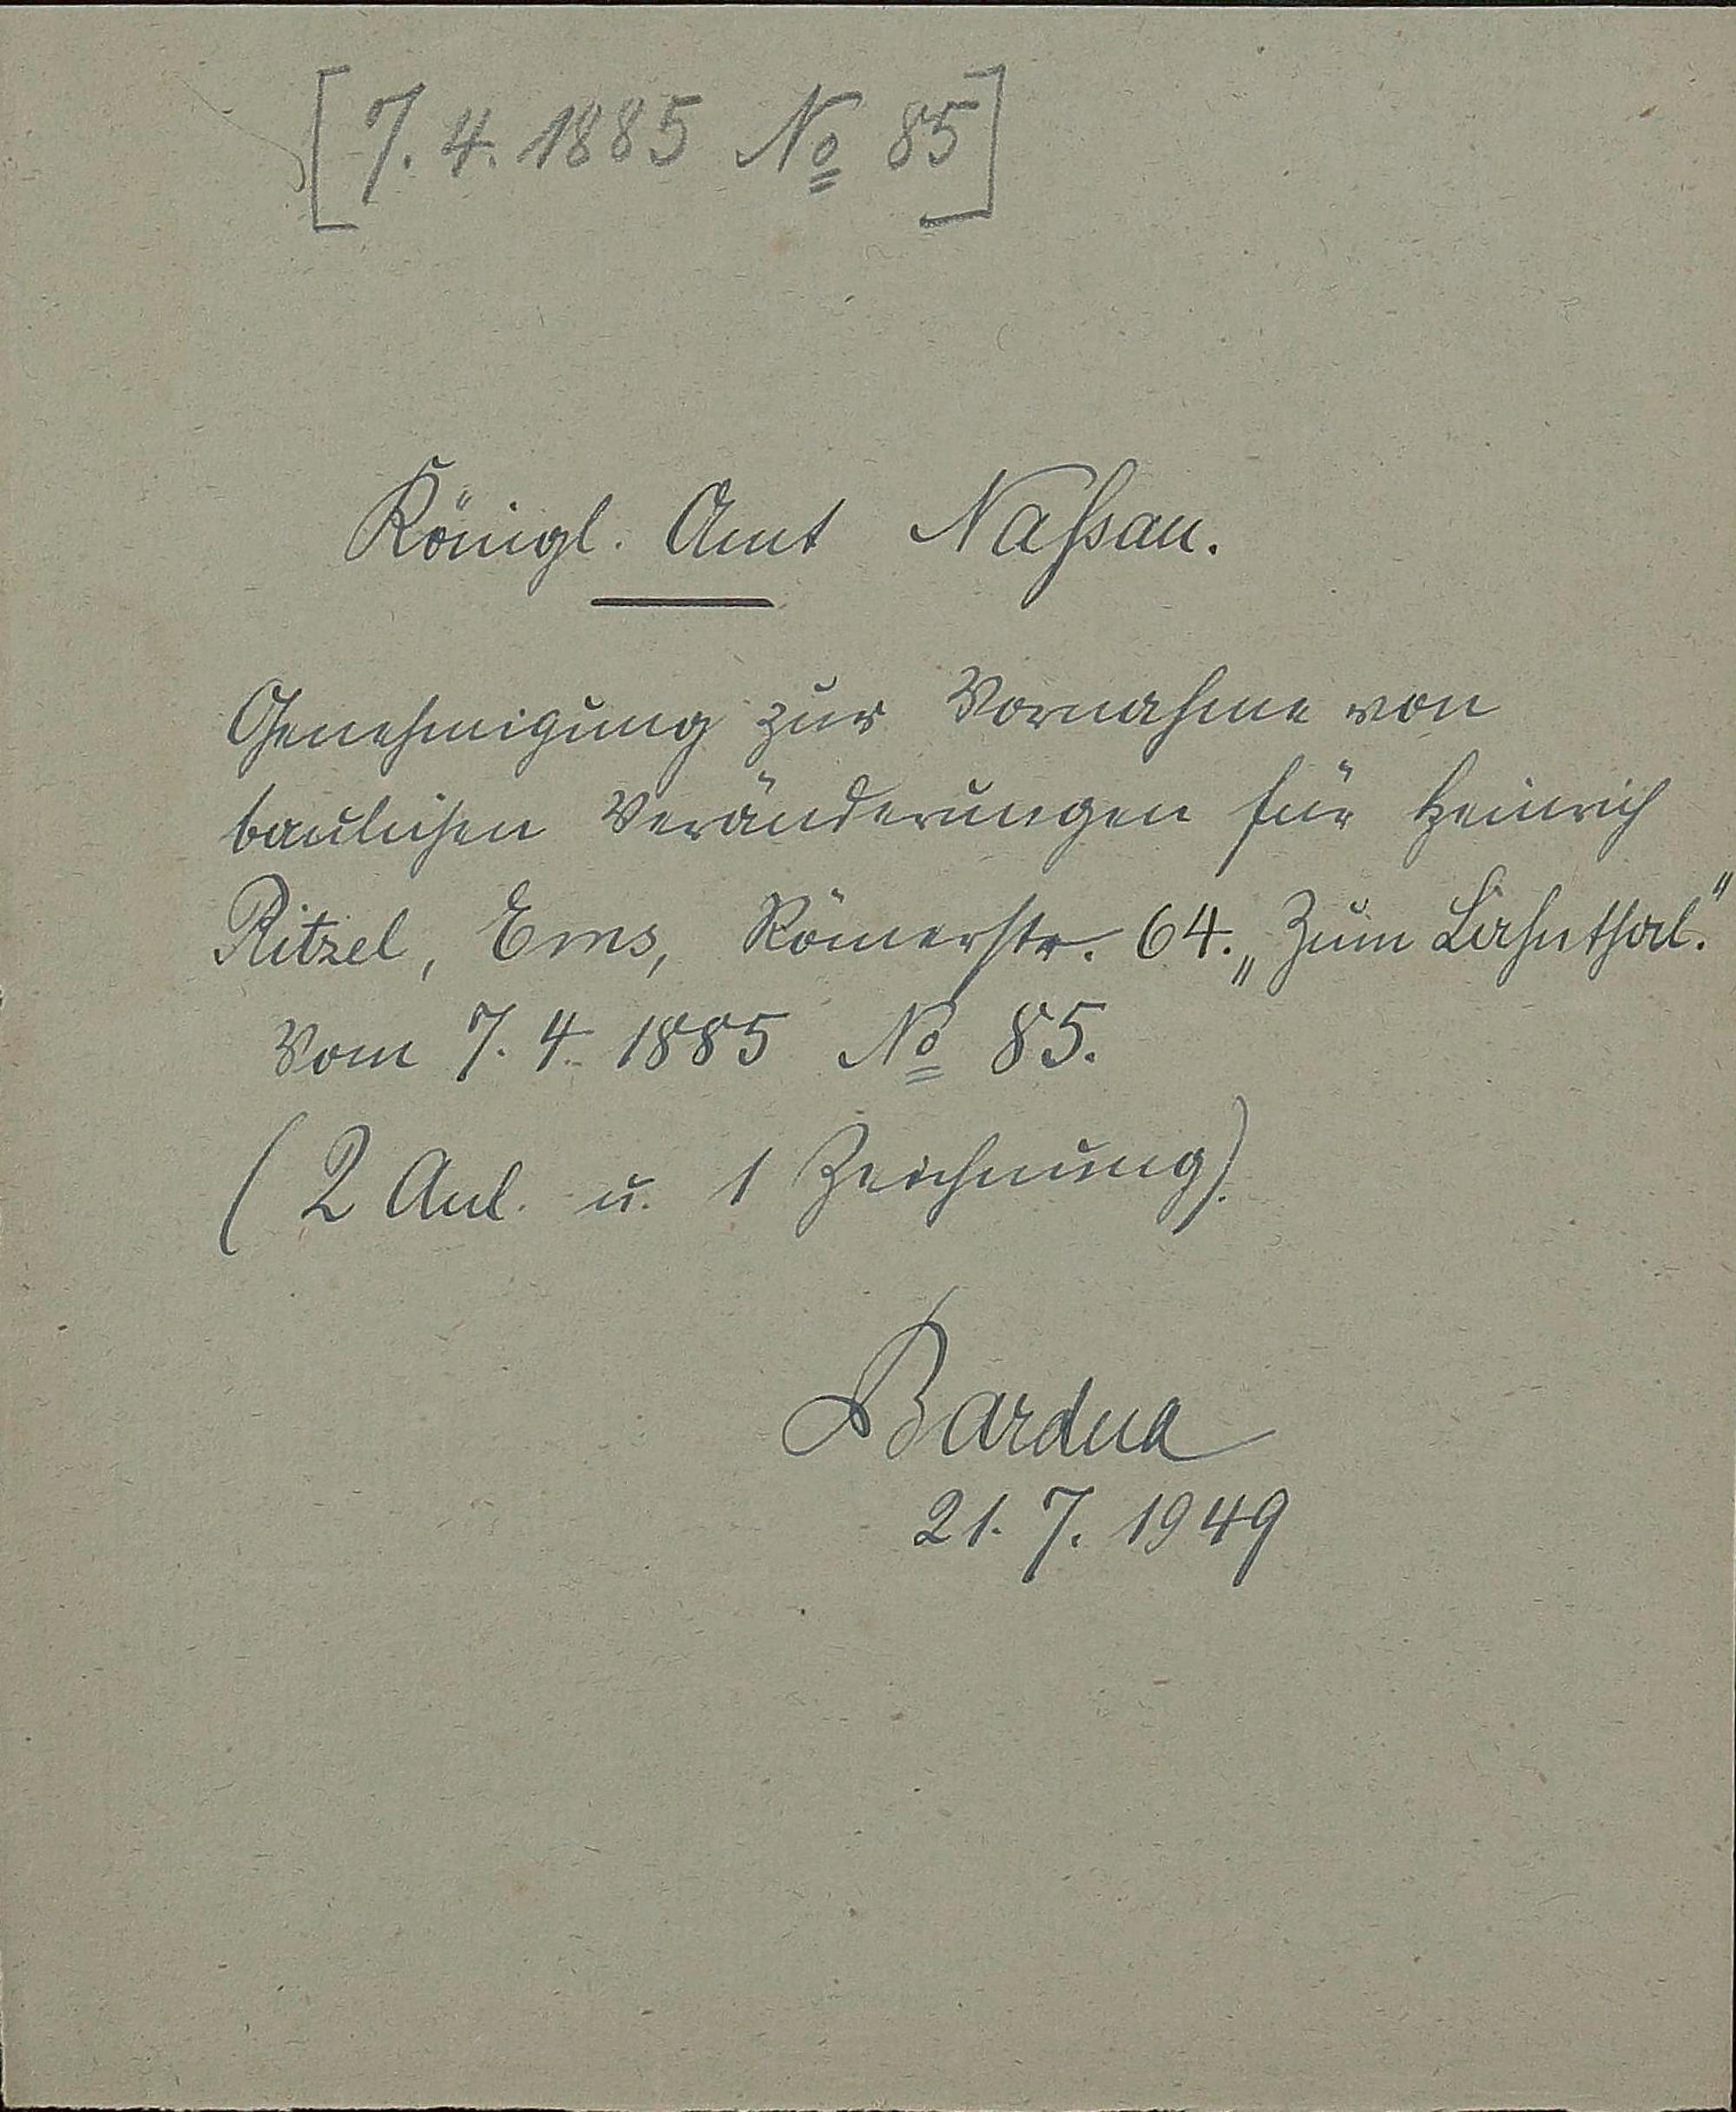 [7. 4. 1885 No 85]
Königl. Amt Naßau.
Genehmigung zur Vornahme von
baulichen Veränderungen für Heinrich
Ritzel, Ems, Römerstr. 64. „Zum Lahnthal."
Vom 7. 4. 1885 No 85.
(2 Anl. u. 1 Zeichnung).
Bardua
21. 7. 1949